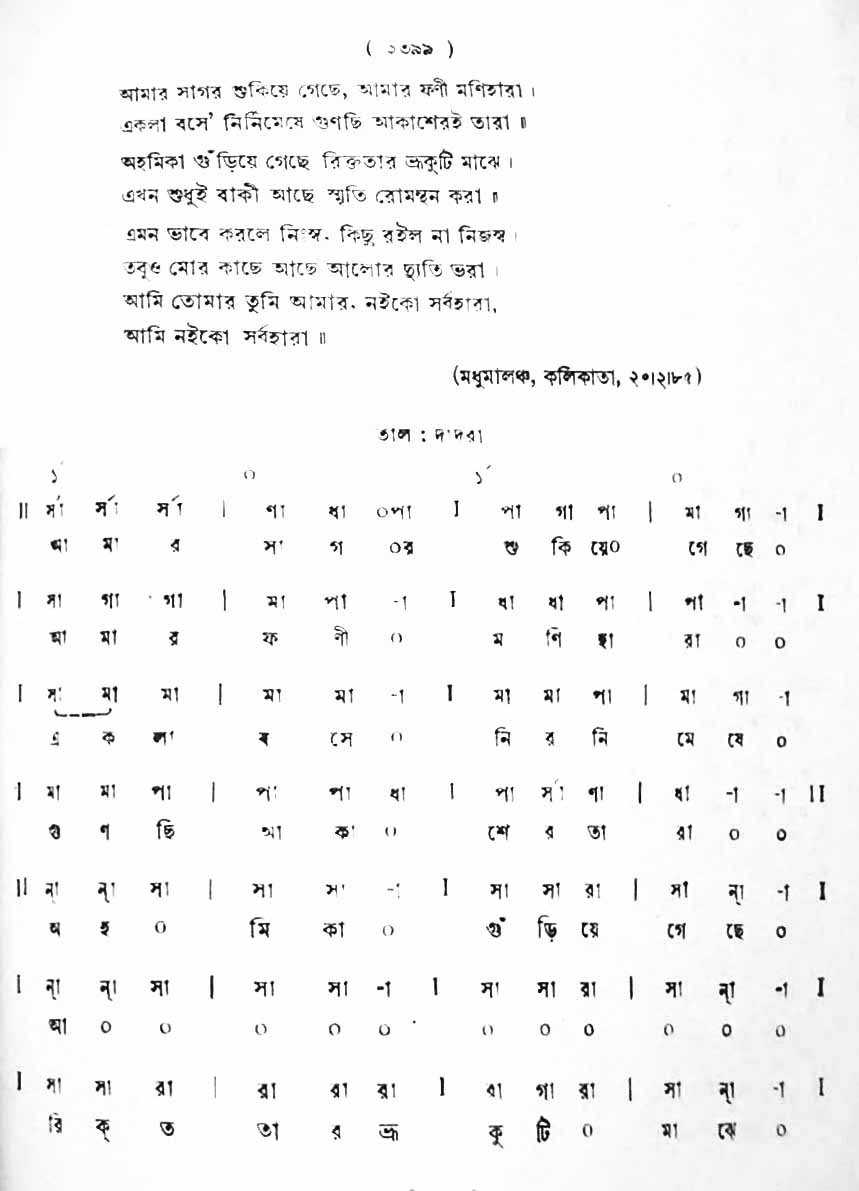 ( ২৩৯৯ )
আমার সাগর শুকিয়ে গেছে, আমার ফণী মণিহারা ।
একলা বসে' নির্নিমেষে গুণছি আকাশেরই তারা ॥
অহমিকা গুঁড়িয়ে গেছে রিক্ততার ভ্রূকুটি মাঝে ।
এখন শুধুই বাকী আছে স্মৃতি রোমন্থন করা ॥
এমন ভাবে করলে নিঃস্ব, কিছু রইল না নিজস্ব ।
তবুও মোর কাছে আছে আলোর দ্যুতি ভরা ।
আমি তোমার তুমি আমার, নইকো সর্বহারা,
আমি নইকো সর্বহারা ॥
(মধুমালঞ্চ, কলিকাতা, ২০।২।৮৫)
তাল : দাদরা
১´ ০ ১´ ০
II র্সা র্সা র্সা | ণা ধা ০পা I পা গা পা | মা গা -া I
আ মা র সা গ ০র শু কি য়ে০ গে ছে ০
I সা গা গা | মা পা -া I ধা ধা পা | পা -া -া I
আ মা র ফ ণী ০ ম ণি হা রা ০ ০
I সা মা মা | মা মা -া I মা মা পা | মা গা -া
এ ক লা ব সে ০ নি র নি মে ষে ০
I মা মা পা | পা পা ধা I পা র্সা ণা | ধা -া -া II
গু ণ ছি আ কা ০ শে র তা রা ০ ০
II ন্া ন্া সা | সা সা -া I সা সা রা | সা ন্া -া I
অ হ ০ মি কা ০ গুঁ ড়ি য়ে গে ছে ০
I ন্া ন্া সা | সা সা -া I সা সা রা | সা ন্া -া I
আ ০ ০ ০ ০ ০ ০ ০ ০ ০ ০ ০
I সা সা রা | রা রা রা I রা গা রা | সা ন্া -া I
রি ক্ ত তা র ভ্রূ কু টি ০ মা ঝে ০